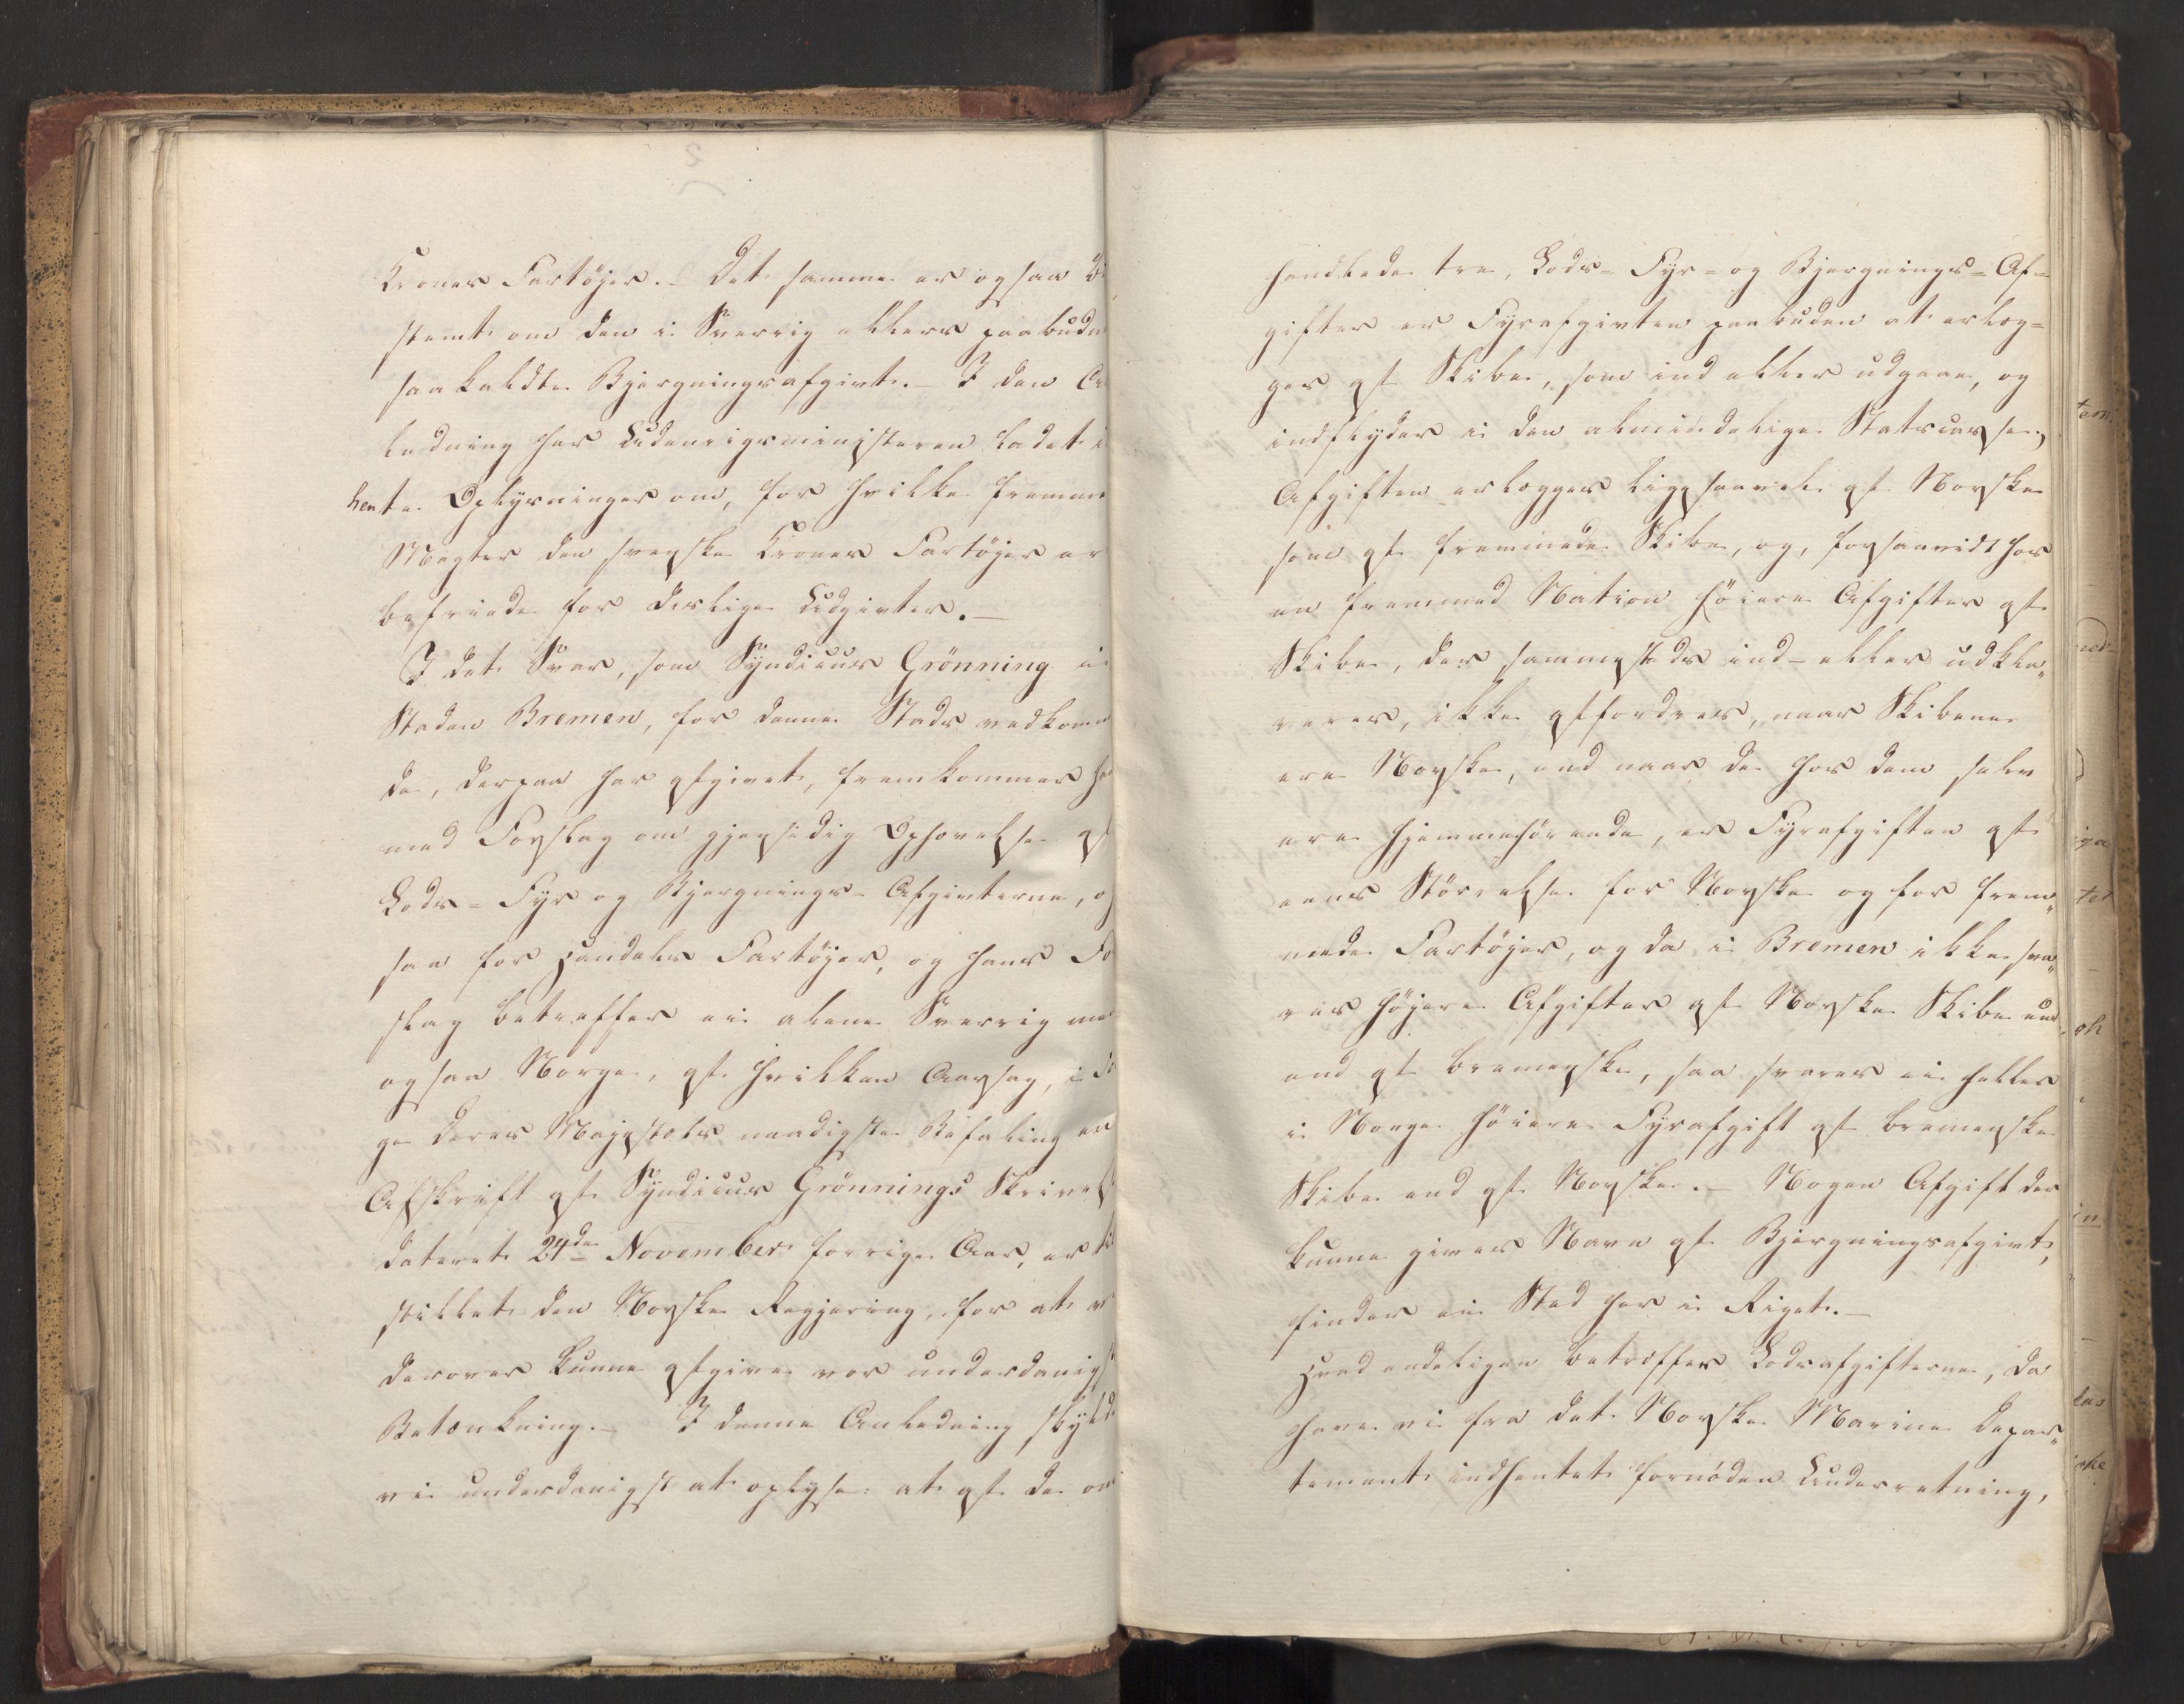 Krones Fartøjer. - Det samme er ogsaa be
stemt om den i Sverrig ellers paabudne
saakaldte Bjergningsafgivt. - I den An
ledning har Udenrigsministeren ladet i
hente Oplysninger om, for hvilke fremme
Magter den svenske Krones Fartøjer er
befriede for deslige Udgivter. -
I det Svar, som Syndicus Grönning i
Staden Bremen, for denne Stads vedkomm
de, derpaa har afgivet, fremkommer han
med Forslag om gjensidig Ophævelse af
Lods- Fyr og Bjergnings-Afgivterne, og
saa for Handels Fartøjer, og hans For
slag betreffer ei alene Sverrig men
ogsaa Norge, af hvilken Aarsag, i Fø
ge Deres Majestæts naadigste Befaling en
Afskrift af Syndicus Grönnings Skrivelse
dateret 24de November forrige Aar, er til
stillet den Norske Regjering, for at vi
derover kunne afgive vor underdanigst
Betænkning. - I denne Anledning skylde
vi underdanigst at oplyse: at af de om
handlede tre, Lods- Fyr- og Bjergnings-Af-
gifter er Fyrafgivten paabuden at erlæg-
ges af Skibe, som ind eller udgaae, og
indflyder i den almindelige Statscasse,
Afgiften erlægges ligesaavel af Norske
som af fremmede Skibe, og, forsaavidt hos
en fremmed Nation høiere Afgifter af
Skibe, der sammesteds ind- eller udkla„
reres, ikke affordres, naar Skibene
ere Norske, end naar de hos dem selv
ere hjemmehørende, er Fyrafgiften af
eens Størrelse for Norske og for frem„
mede Fartøjer, og da i Bremen ikke sva„
res højere Afgifter af Norske Skibe
end af bremenske, saa svares ei heller
i Norge høiere Fyrafgift af bremenske
Skibe end af Norske. - Nogen Afgift der
kunne gives Navn af Bjergningsafgivt,
finder ei Sted her i Riget. -
Hvad endeligen betræffer Lodsafgifterne, da
have vi fra det Norske Marine Depar„
tement indhentet fornöden Underretning,